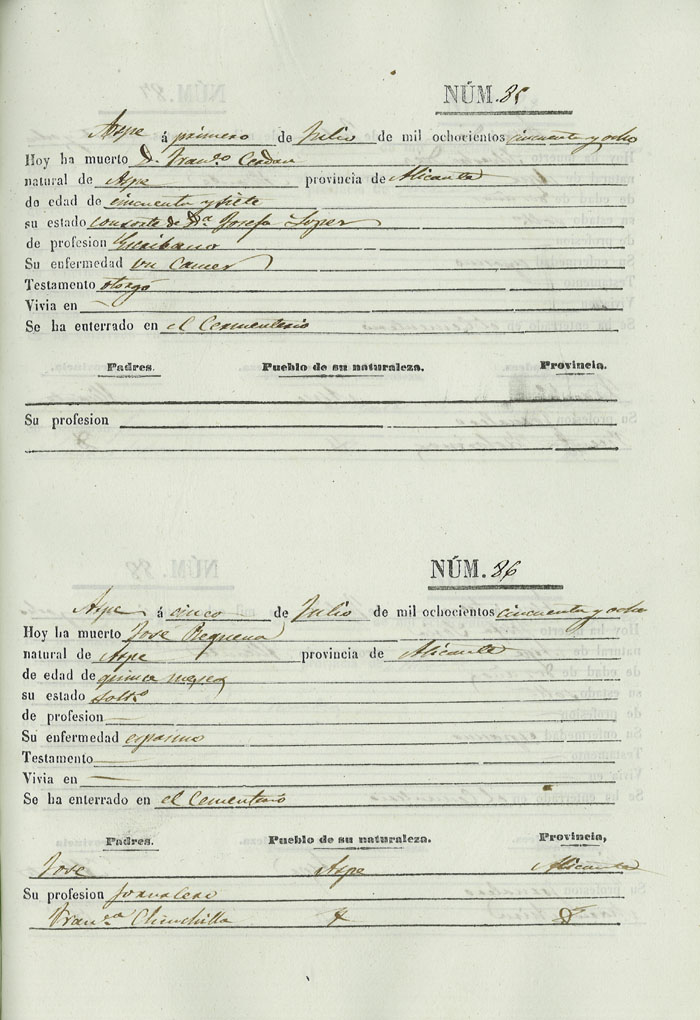 NÚM. 85
Aspe á primero de Julio de mil ochocientos cincuenta y ocho
Hoy ha muerto D. Fran.co Cerdan
natural de Aspe provincia de Alicante
de edad de cincuenta y siete
su estado consorte de D.ª Josefa Lopez
de profesion Escribano
Su enfermedad un Cancer
Testamento otorgó
Vivia en
Se ha enterrado en el Cementerio
Padres. Pueblo de su naturaleza. Provincia.
Su profesion
NÚM. 86
Aspe á cinco de Julio de mil ochocientos cincuenta y ocho
Hoy ha muerto Jose Pequeno
natural de Aspe provincia de Alicante
de edad de quince meses
su estado solt.o
de profesion
Su enfermedad espasmo
Testamento
Vivia en
Se ha enterrado en el Cementerio
Padres. Pueblo de su naturaleza. Provincia,
Jose Aspe Alicante
Su profesion Jornalero
Fran.ca Chinchilla